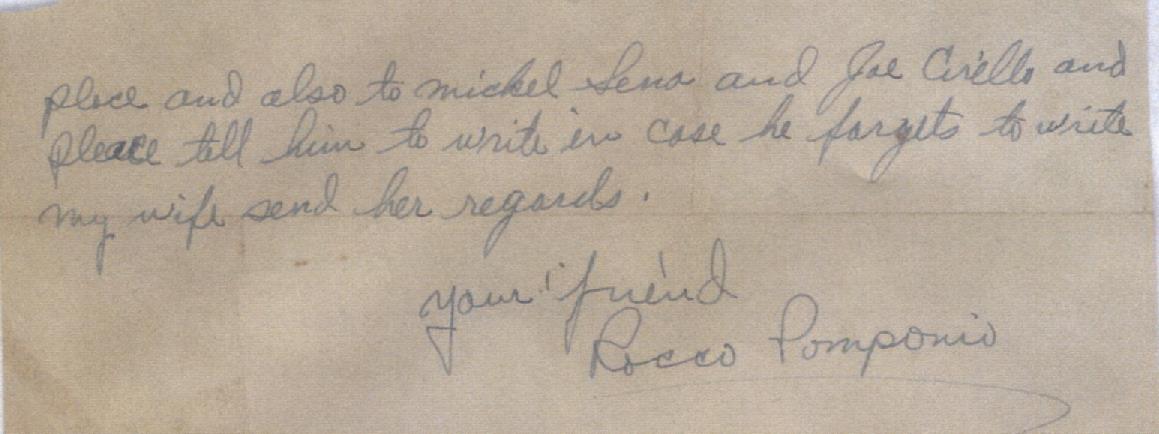 place and also to mickel Sena and Joe Cirello and
please tell him to write in case he forgets to write
my wife send her regards.
your friend
Rocco Pomponio